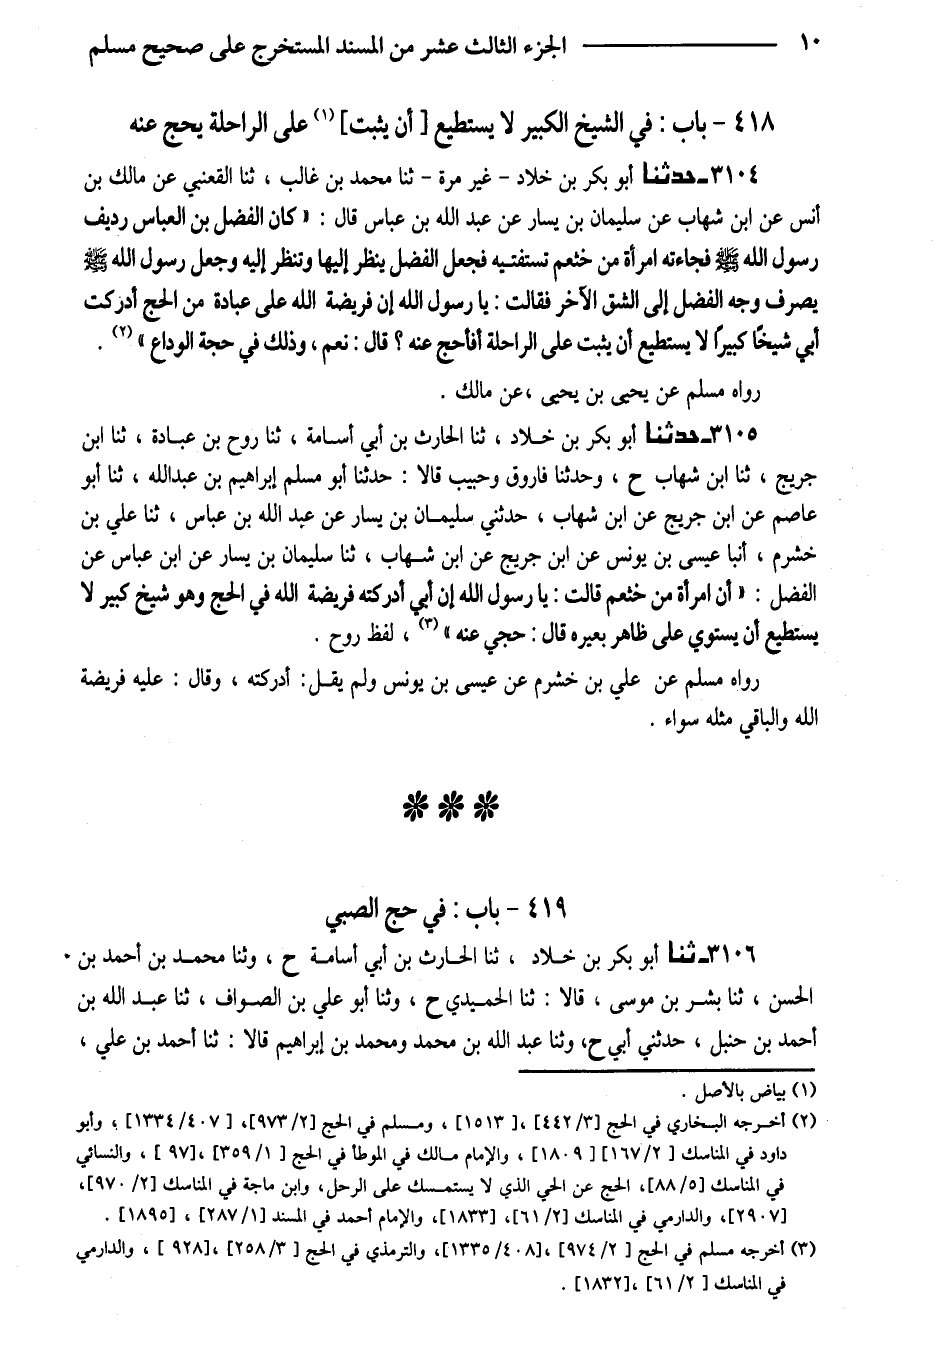 ١٠ ــــــــــــ الجزء الثالث عشر من المسند المستخرج على صحيح مسلم
٤١٨ - باب : في الشيخ الكبير لا يستطيع [ أن يثبت] (١) على الراحلة يحج عنه
٣١٠٤ـ حدثنا أبو بكر بن خلاد - غير مرة - ثنا محمد بن غالب ، ثنا القعنبي عن مالك بن
أنس عن ابن شهاب عن سليمان بن يسار عن عبد الله بن عباس قال : « كان الفضل بن العباس رديف
رسول الله ﷺ فجاءته امرأة من خثعم تستفتيه فجعل الفضل ينظر إليها وتنظر إليه وجعل رسول الله ﷺ
يصرف وجه الفضل إلى الشق الآخر فقالت : يا رسول الله إن فريضة الله على عبادة من الحج أدركت
أبي شيخًا كبيرًا لا يستطيع أن يثبت على الراحلة أفأحج عنه ؟ قال : نعم ، وذلك في حجة الوداع » (٢) .
رواه مسلم عن يحيى بن يحيى ،عن مالك .
٣١٠٥ـ حدثنا أبو بكر بن خلاد ، ثنا الحارث بن أبي أسامة ، ثنا روح بن عبادة ، ثنا ابن
جريج ، ثنا ابن شهاب ح ، وحدثنا فاروق وحبيب قالا : حدثنا أبو مسلم إبراهيم بن عبدالله ، ثنا أبو
عاصم عن ابن جريج عن ابن شهاب ، حدثني سليمان بن يسار عن عبد الله بن عباس ، ثنا علي بن
خشرم ، أنبا عيسى بن يونس عن ابن جريج عن ابن شهاب ، ثنا سليمان بن يسار عن ابن عباس عن
الفضل : « أن امرأة من خثعم قالت : يا رسول الله إن أبي أدركته فريضة الله في الحج وهو شيخ كبير لا
يستطيع أن يستوي على ظاهر بعيره قال : حجي عنه » (٣) ، لفظ روح .
رواه مسلم عن علي بن خشرم عن عيسى بن يونس ولم يقل : أدركته ، وقال : عليه فريضة
الله والباقي مثله سواء .
٤١٩ - باب : في حج الصبي
٣١٠٦ـ ثنا أبو بكر بن خلاد ، ثنا الحارث بن أبي أسامة ح ، وثنا محمد بن أحمد بن
الحسن ، ثنا بشر بن موسى ، قالا : ثنا الحميدي ح ، وثنا أبو علي بن الصواف ، ثنا عبد الله بن
أحمد بن حنبل ، حدثني أبي ح، وثنا عبد الله بن محمد ومحمد بن إبراهيم قالا : ثنا أحمد بن علي ،
(١) بياض بالأصل .
(٢) أخرجه البخاري في الحج [٤٤٢/٣] ،[ ١٥١٣] ، ومسلم في الحج [٩٧٣/٢]، [ ١٣٣٤/٤٠٧] ، وأبو
داود في المناسك [ ١٦٧/٢] [ ١٨٠٩] ، والإمام مالك في الموطأ في الحج [ ٣٥٩/١] ،[٩٧ ] ، والنسائي
في المناسك [٨٨/٥]، الحج عن الحي الذي لا يستمسك على الرحل، وابن ماجة في المناسك [٩٧٠/٢]،
[٢٩٠٧]، والدارمي في المناسك [٦١/٢]، [١٨٣٣]، والإمام أحمد في المسند [٢٨٧/١] ، [١٨٩٥] .
(٣) أخرجه مسلم في الحج [ ٩٧٤/٢] ،[١٣٣٥/٤٠٨]، والترمذي في الحج [ ٢٥٨/٣] ،[٩٢٨ ] ، والدارمي
في المناسك [ ٦١/٢] ،[١٨٣٢] .